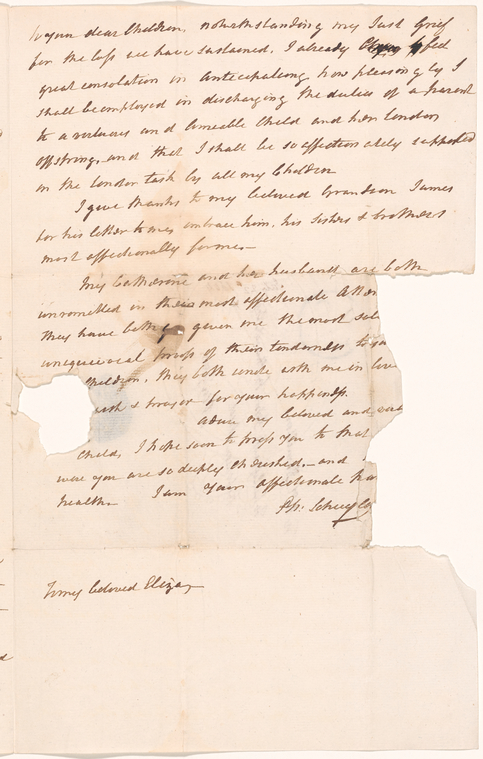 to your dear Children, notwithstanding my Just Grief
for the loss we have sustained, I already feel
great consolation in anticipating how pleasingly I
shall be employed in discharging the duties of a parent
to a virtuous and Amiable Child and her tender
offspring, and that I shall be so affectionately supported
in the tender task by all my Children
I give thanks to my beloved Grandson James
for his letter to me, embrace him, his sisters & brothers
most affectionately for me —
My Catherine and her husband are both
unremitted in their most affectionate Atten
they have both given me the most
unequivocal proofs of their tenderness to you
Children, they both unite with me in love
& prayer for your happiness.
Adieu my beloved and
Child, I hope soon to press you to that
were you are so deeply cherished, — and
health — I am Your affectionate
Ph: Schuyl
To my beloved Eliza